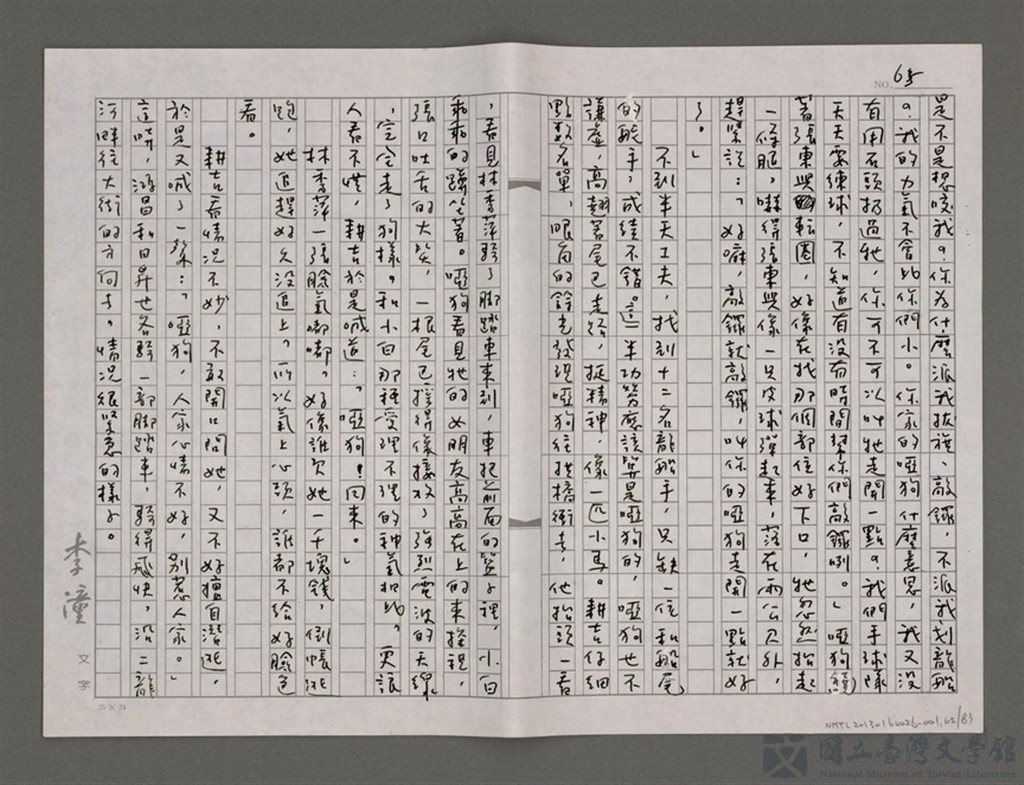 NO. 65
是不是想咬我?你為什麼派我拔旗、敲鑼,不派我划龍船
?我的力氣不會比你們小。你家的啞狗什麼意思,我又沒
有用石頭扔過牠,你可不可以叫牠走開一點?我們手球隊
天天要練球,不知道有沒有時間幫你們敲鑼咧。」啞狗繞
著張東興轉圈,好像在找那個部位好下口,牠忽然抬起
一條腿,嚇得張東興像一只皮球彈起來,落在兩公尺外,
趕緊說:「好嘛,敲鑼就敲鑼,叫你的啞狗走開一點就好
了。」
不到半天工夫,找到十二名龍船手,只缺一位和船尾
的舵手,成績不錯。這一半功勞應該算是啞狗的,啞狗也不
謙虛,高翹著尾巴走路,挺精神,像一匹小馬。耕吉仔細
點數名單,眼角的餘光發現啞狗往拱橋街去,他抬頭一看
,看見林李萍騎了脚踏車來到,車把前面的籃子裡,小白
乖乖的蹲坐著。啞狗看見牠的女朋友高高在上的來探視,
張口吐舌的大笑,一根尾巴搖得像接收了強烈電波的天線
,完全走了狗樣。和小白那種愛理不理的神氣相比,更讓
人看不慣,耕吉於是喊道:「啞狗!回來。」
林李萍一張臉氣嘟嘟。好像誰欠她一千塊錢,倒帳逃
跑,她追趕好久沒追上。所以氣上心頭,誰都不給好臉色
看。
耕吉看情況不妙,不敢開口問她,又不好擅自潛逃,
於是又喊了一聲:「啞狗,人家心情不好,別惹人家。」
這時,鴻昌和日昇也各騎一部脚踏車,騎得飛快,沿二龍
河畔往大街的方向去。情況很緊急的樣子。
李潼
文字
25×24
NMTL20130160026-001,65/83
國立臺灣文學館
National Museum of Taiwan Literature